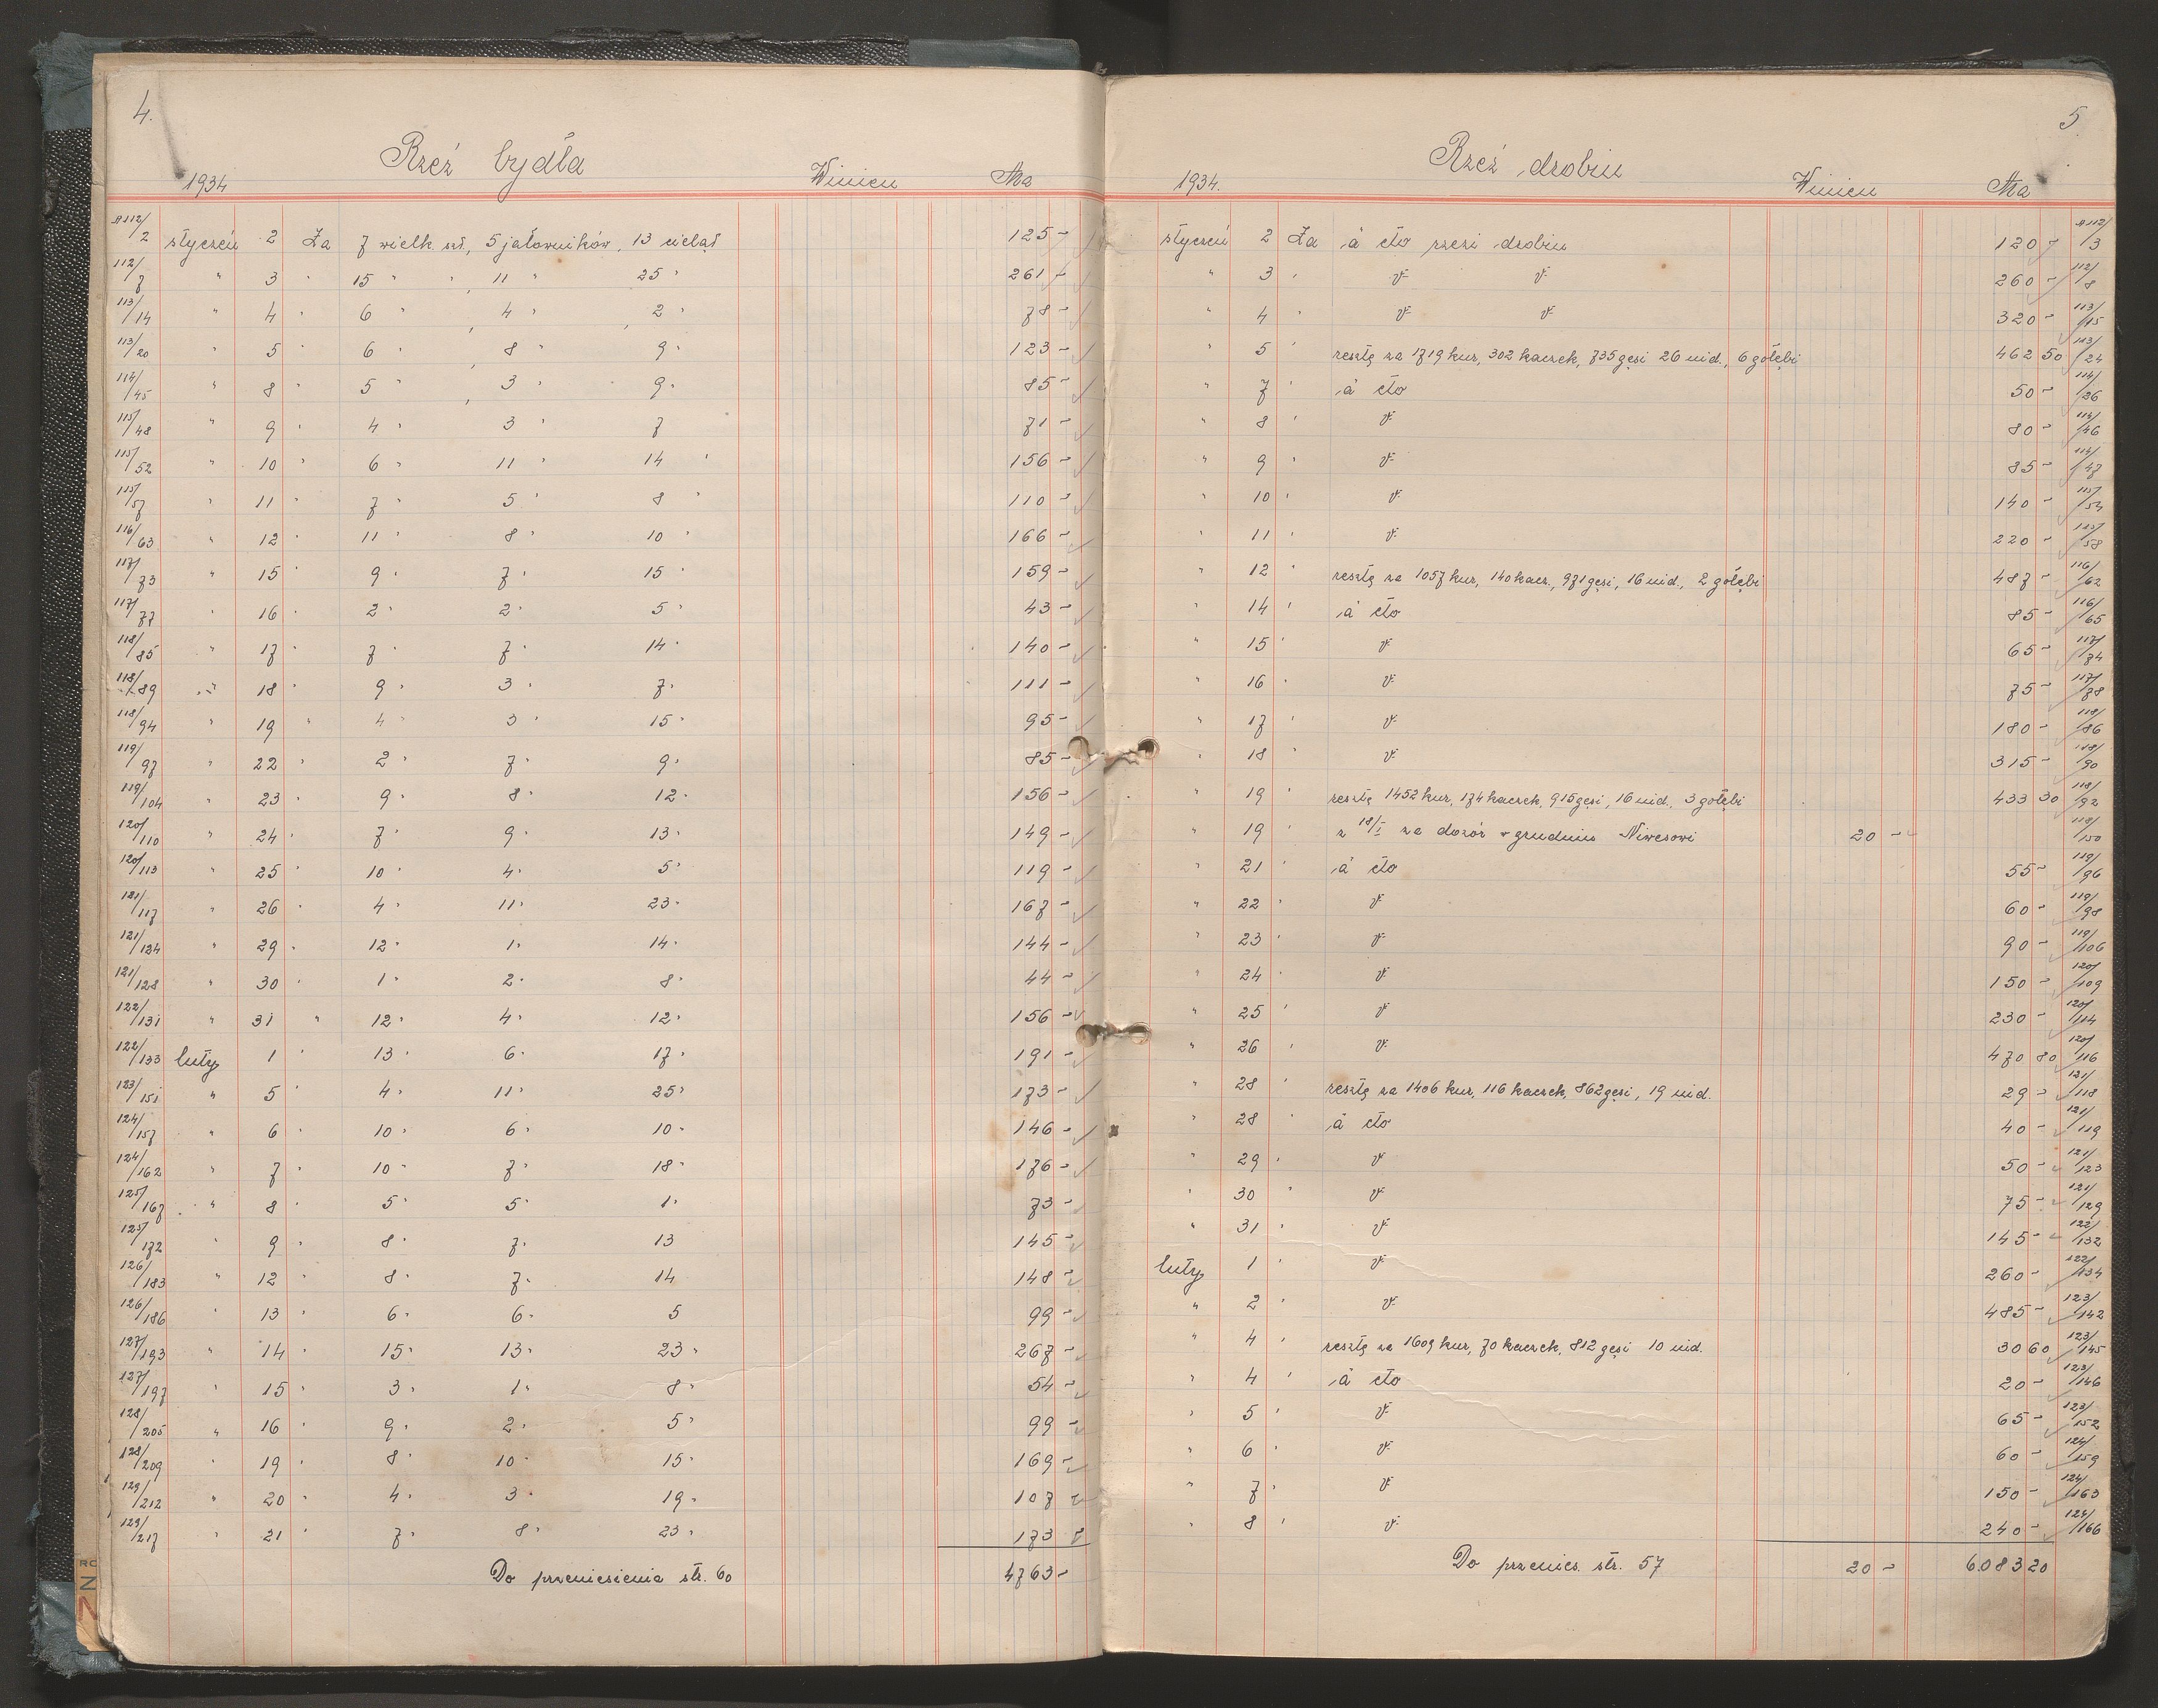 4.
Rzeź bydła
1934 Winien Ma
A 112/2 styczeń 2 Za 7 wielk. szt., 5 jałowników, 13 cieląt 125 -
112/7 " 3 " 15 " " 11 " 25 " 261 -
113/14 " 4 " 6 " , 4 " , 2 " 78 -
113/20 " 5 " 6 " 8 " 9 " 123 -
114/45 " 8 " 5 " , 3 " 9 " 85 -
115/48 " 9 " 4 " 3 " 7 71 -
115/52 " 10 " 6 " 11 " 14 " 156 -
115/57 " 11 " 7 " 5 " 8 " 110 -
116/63 " 12 " 11 " 8 " 10 " 166 -
117/73 " 15 " 9 " 7 " 15 " 159 -
117/77 " 16 " 2 " 2 " 5 " 43 -
118/85 " 17 " 7 " 7 " 14 " 140 -
118/89 " 18 " 9 " 3 " 7 " 111 -
118/94 " 19 " 4 " 3 " 15 " 95 -
119/97 " 22 " 2 " 7 " 9 " 85 -
119/104 " 23 " 9 " 8 " 12 " 156 -
120/110 " 24 " 7 " 9 " 13 " 149 -
120/113 " 25 " 10 " 4 " 5 " 119 -
121/117 " 26 " 4 " 11 " 23 " 167 -
121/124 " 29 " 12 " 1 " 14 " 144 -
121/128 " 30 " 1 " 2 " 8 " 44 -
122/131 " 31 " 12 " 4 " 12 " 156 -
122/133 luty 1 " 13 " 6 " 17 " 191 -
123/151 " 5 " 4 " 11 " 25 " 173 -
124/157 " 6 " 10 " 6 " 10 " 146 -
124/162 " 7 " 10 " 7 " 18 " 176 -
125/167 " 8 " 5 " 5 " 1 " 73 -
125/172 " 9 " 8 " 7 " 13 145 -
126/183 " 12 " 8 " 7 " 14 148 -
126/186 " 13 " 6 " 6 " 5 99 -
127/193 " 14 " 15 " 13 " 23 " 267 -
127/197 " 15 " 3 " 1 " 8 " 54 -
128/205 " 16 " 9 " 2 " 5 " 99 -
128/209 " 19 " 8 " 10 " 15 " 169 -
129/212 " 20 " 4 " 3 " 19 " 107 -
129/217 " 21 " 7 " 8 " 23 " 173 -
Do przeniesienia str. 60 4763 -
5.
Rzeź drobiu
1934. Winien Ma
styczeń 2 Za à cto rzezi drobiu 120 - A 112/3
" 3 " v. v. 260 - 112/8
" 4 " v. v. 320 - 113/15
" 5 " resztę za 1719 kur, 302 kaczek, 735 gęsi 26 ind., 6 gołębi 462 50 113/24
" 7 " à cto 50 - 114/26
" 8 " v. 80 - 114/46
" 9 " v. 85 - 114/47
" 10 " v. 140 - 115/54
" 11 " v. 220 - 115/58
" 12 " resztę za 1057 kur, 140 kacz., 971 gęsi, 16 ind., 2 gołębi 487 - 116/62
" 14 " à cto 85 - 116/65
" 15 " v. 65 - 117/74
" 16 " v. 75 - 117/78
" 17 " v. 180 - 118/86
" 18 " v. 315 - 118/90
" 19 " resztę 1452 kur, 174 kaczek, 915 gęsi, 16 ind., 3 gołębi 433 30 118/92
" 19 " z 18/I za dozór w grudniu Niwesowi 20 - 118/150
" 21 " à cto 55 - 119/96
" 22 " v. 60 - 119/98
" 23 " v. 90 - 119/106
" 24 " v. 150 - 120/109
" 25 " v. 230 - 120/114
" 26 " v. 470 80 120/116
" 28 " resztę za 1406 kur, 116 kaczek, 862 gęsi, 19 ind. 29 - 121/118
" 28 " à cto 40 - 121/119
" 29 " v. 50 - 121/123
" 30 " v. 75 - 121/129
" 31 " v. 145 - 122/132
luty 1 " v. 260 - 122/134
" 2 " v. 485 - 123/142
" 4 " resztę za 1609 kur, 70 kaczek, 812 gęsi 10 ind. 30 60 123/145
" 4 " à cto 20 - 123/146
" 5 " v. 65 - 123/152
" 6 " v. 60 - 124/159
" 7 " v. 150 - 124/163
" 8 " v. 240 - 124/166
Do przenies. str. 57 20 - 6.083 20